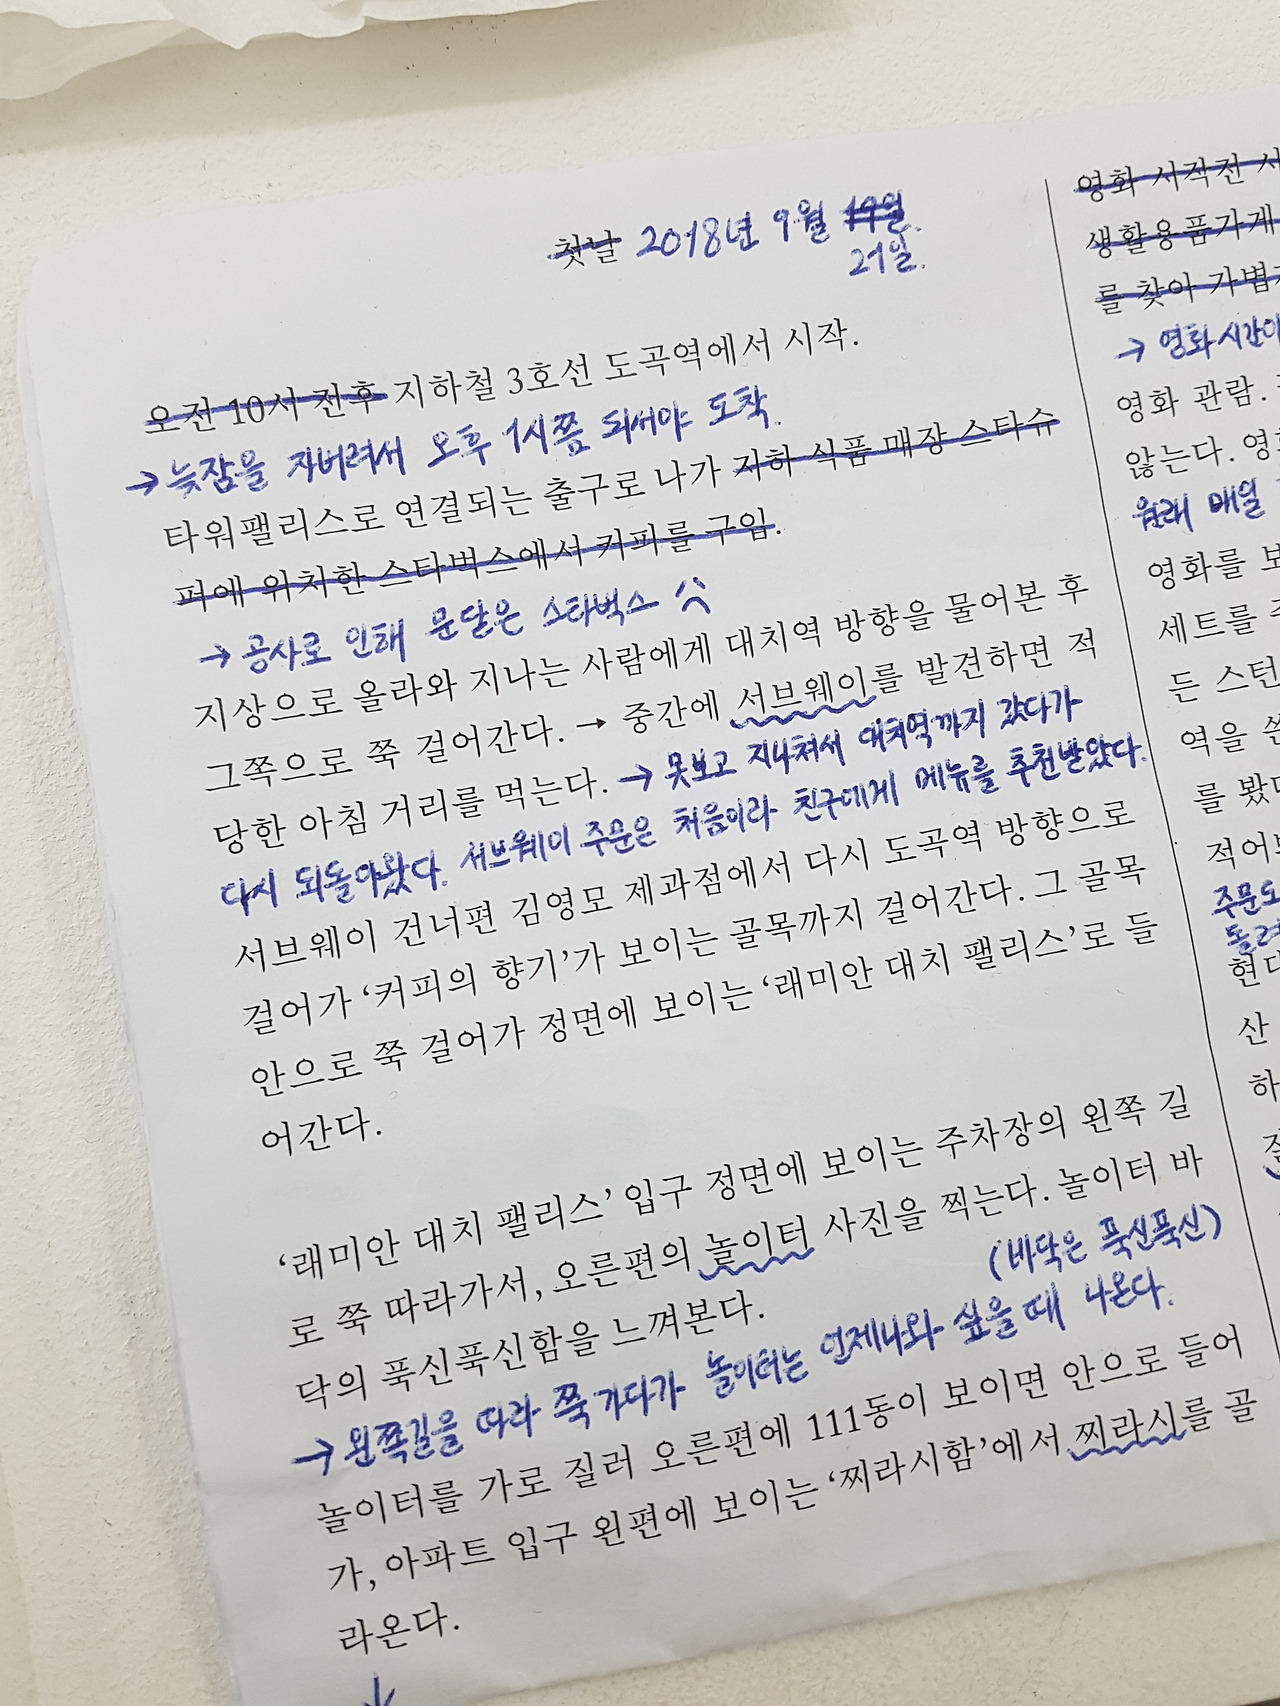 첫날 2018년 9월 19일.
21일.
오전 10시 전후 지하철 3호선 도곡역에서 시작.
→ 늦잠을 자버려서 오후 1시쯤 되서야 도착.
타워팰리스로 연결되는 출구로 나가 지하 식품 매장 스타슈
퍼에 위치한 스타벅스에서 커피를 구입.
→ 공사로 인해 문닫은 스타벅스
지상으로 올라와 지나는 사람에게 대치역 방향을 물어본 후
그쪽으로 쭉 걸어간다. → 중간에 서브웨이를 발견하면 적
당한 아침 거리를 먹는다. → 못보고 지나쳐서 대치역까지 갔다가
다시 되돌아왔다. 서브웨이 주문은 처음이라 친구에게 메뉴를 추천받았다.
서브웨이 건너편 김영모 제과점에서 다시 도곡역 방향으로
걸어가 ‘커피의 향기’가 보이는 골목까지 걸어간다. 그 골목
안으로 쭉 걸어가 정면에 보이는 ‘래미안 대치 팰리스’로 들
어간다.
‘래미안 대치 팰리스’ 입구 정면에 보이는 주차장의 왼쪽 길
로 쭉 따라가서, 오른편의 놀이터 사진을 찍는다. 놀이터 바
닥의 푹신푹신함을 느껴본다.
(바닥은 푹신푹신)
→ 왼쪽길을 따라 쭉 가다가 놀이터는 언제나와 싶을 때 나온다.
놀이터를 가로 질러 오른편에 111동이 보이면 안으로 들어
가, 아파트 입구 왼편에 보이는 ‘찌라시함’에서 찌라시를 골
라온다.
↓
영화 시작전
생활용품가게
를 찾아
→ 영화시간이
영화 관람.
않는다.
원래 매일
영화를
세트를
든
역을
를 봤
적어
주문도
돌려
현대
산
하